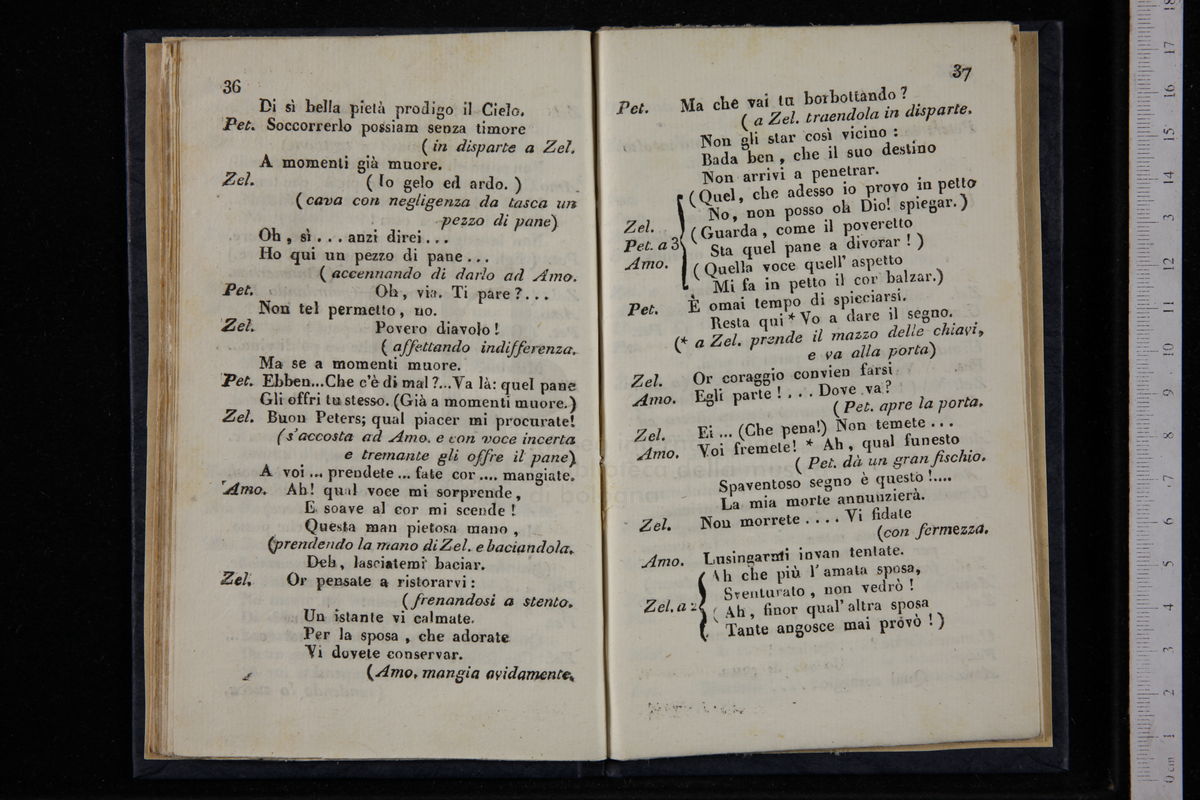 36
Di sì bella pietà prodigo il Cielo.
Pet. Soccorrerlo possiam senza timore
( in disparte a Zel.
A momenti già muore.
Zel. ( Io gelo ed ardo. )
( cava con negligenza da tasca un
pezzo di pane)
Oh, sì . . . anzi direi . . .
Ho qui un pezzo di pane . . .
( accennando di darlo ad Amo.
Pet. Oh, via. Ti pare ? . . .
Non tel permetto, no.
Zel. Povero diavolo !
( affettando indifferenza.
Ma se a momenti muore.
Pet. Ebben...Che c'è di mal ?...Va là: quel pane
Gli offri tu stesso. (Già a momenti muore.)
Zel. Buon Peters; qual piacer mi procurate!
( s'accosta ad Amo. e con voce incerta
e tremante gli offre il pane)
A voi ... prendete ... fate cor .... mangiate.
Amo. Ah! qual voce mi sorprende,
E soave al cor mi scende !
Questa man pietosa mano ,
(prendendo la mano di Zel. e baciandola.
Deh, lasciatemi baciar.
Zel. Or pensate a ristorarvi :
( frenandosi a stento.
Un istante vi calmate.
Per la sposa , che adorate
Vi dovete conservar.
(Amo. mangia avidamente.
37
Pet. Ma che vai tu borbottando ?
( a Zel. traendola in disparte.
Non gli star così vicino :
Bada ben , che il suo destino
Non arrivi a penetrar.
(Quel, che adesso io provo in petto
No, non posso oh Dio! spiegar.)
Zel. ( Guarda , come il poveretto
Pet. a 3 Sta quel pane a divorar ! )
Amo. ( Quella voce quell' aspetto
Mi fa in petto il cor balzar.)
Pet. È omai tempo di spicciarsi.
Resta qui * Vo a dare il segno.
(* a Zel. prende il mazzo delle chiavi,
e va alla porta)
Zel. Or coraggio convien farsi
Amo. Egli parte ! . . . Dove va ?
( Pet. apre la porta.
Zel. Ei ... (Che pena!) Non temete . . .
Amo. Voi fremete! * Ah, qual funesto
( Pet. dà un gran fischio.
Spaventoso segno è questo !.....
La mia morte annunzierà.
Zel. Non morrete . . . . Vi fidate
(con fermezza.
Amo. Lusingarmi invan tentate.
Ah che più l'amata sposa,
Sventurato , non vedrò !
Zel. a 2 ( Ah, finor qual' altra sposa
Tante angosce mai provò ! )
biblioteca della musica
di bologna
0 cm 1 2 3 4 5 6 7 8 9 10 11 12 13 14 15 16 17 18